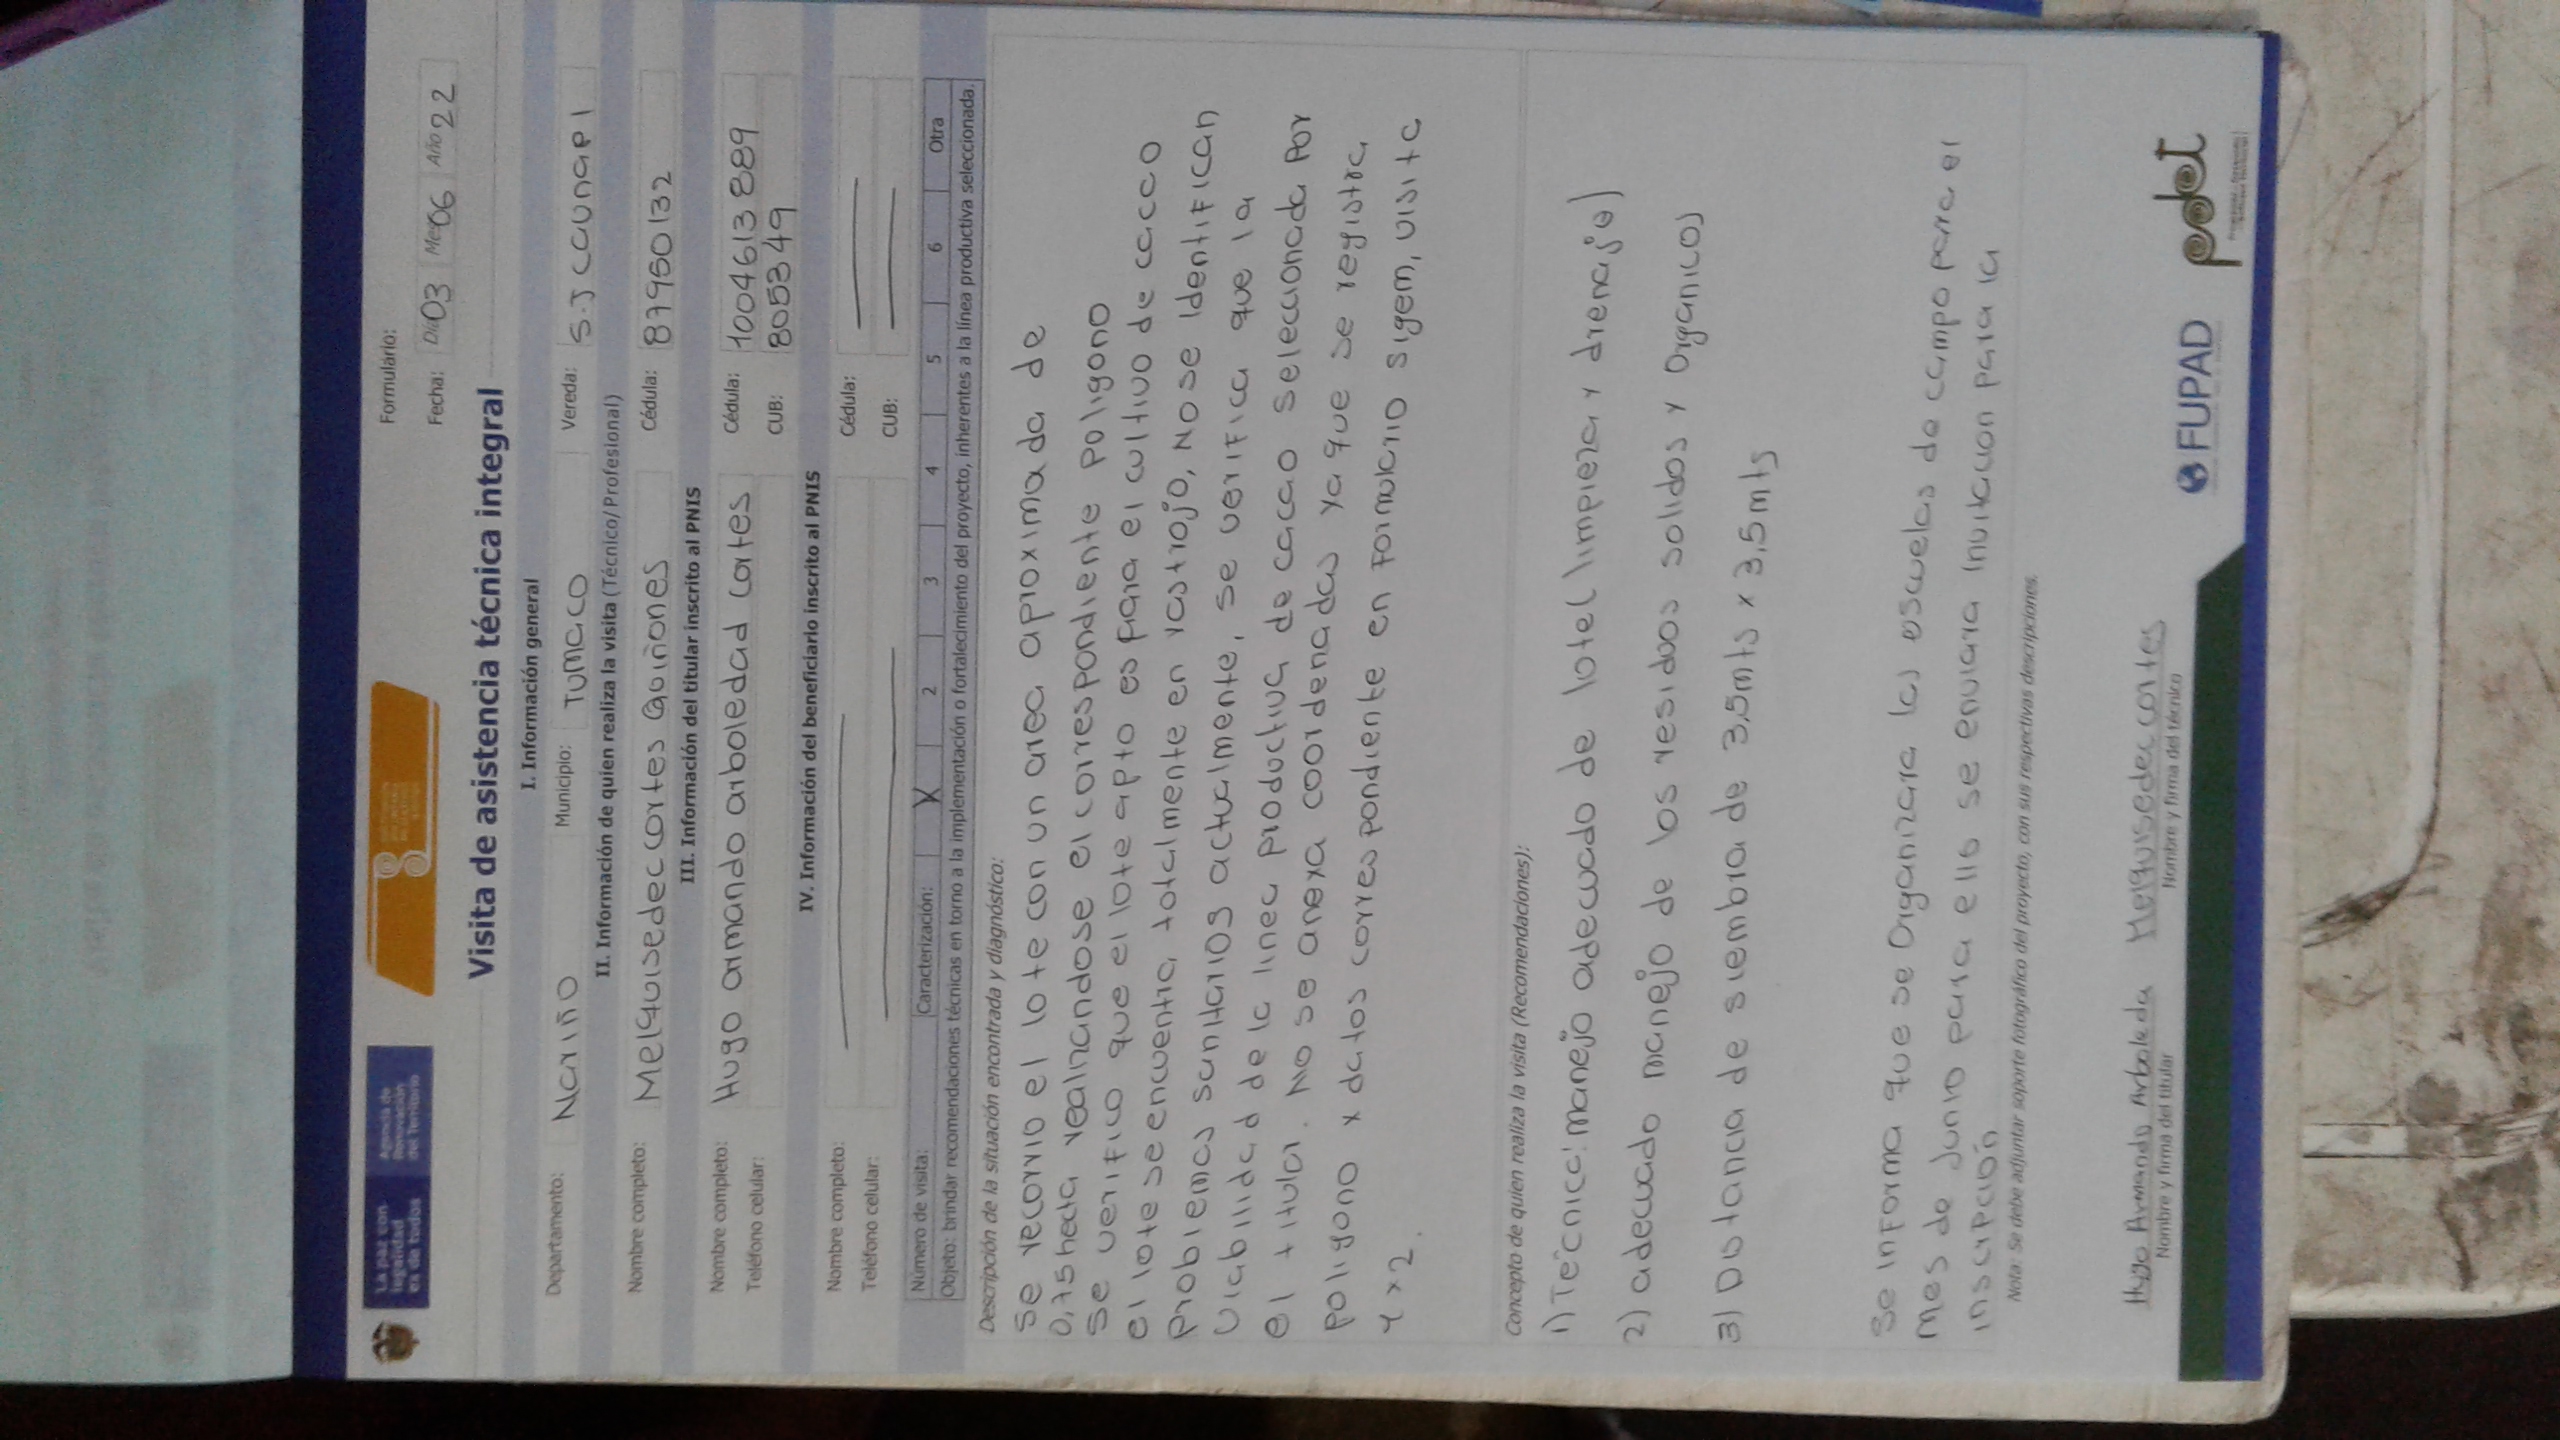 La paz con
legalidad
es de todos
Agencia de
Renovación
del Territorio
Formulario:
Fecha: Día 03 Mes 06 Año 22
Visita de asistencia técnica integral
I. Información general
Departamento: Nariño Municipio: Tumaco Vereda: S.J caunapi
II. Información de quien realiza la visita (Técnico/Profesional)
Nombre completo: Melquisedec cortes Quiñones Cédula: 87950132
III. Información del titular inscrito al PNIS
Nombre completo: Hugo armando arboledad cortes Cédula: 1004613889
Teléfono celular: CUB: 805349
IV. Información del beneficiario inscrito al PNIS
Nombre completo: Cédula:
Teléfono celular: CUB:
Número de visita: Caracterización: X 2 3 4 5 6 Otra
Objeto: brindar recomendaciones técnicas en torno a la implementación o fortalecimiento del proyecto, inherentes a la línea productiva seleccionada.
Descripción de la situación encontrada y diagnóstico:
se recorrio el lote con un area aproximada de
0,75 hecta realnandose el correspondiente poligono
se verifico que el lote apto es para el cultivo de cacao
el lote se encuentra totalmente en rastrojo, No se Identifican
problemas sanitarios actualmente, se verifica que la
viabilidad de la linea productiva de cacao seleccionada por
el titular. No se anexa coordenadas ya que se registra
poligono x datos correspondiente en formulario sigem, visita
1 x 2.
Concepto de quien realiza la visita (Recomendaciones):
1) Tecnica: manejo adecuado de lote (limpieza y drenaje)
2) adecuado manejo de los residos solidos y Organicos
3) Distancia de siembra de 3,5mts x 3,5mts
Se informa que se Organizara las escuelas de campo para el
mes de Junio para ello se enviara invitacion para la
inscripción
Nota: Se debe adjuntar soporte fotográfico del proyecto, con sus respectivas descripciones.
Hugo Armando Arboleda Melquisedec cortes
Nombre y firma del titular Nombre y firma del técnico
FUPAD pdet